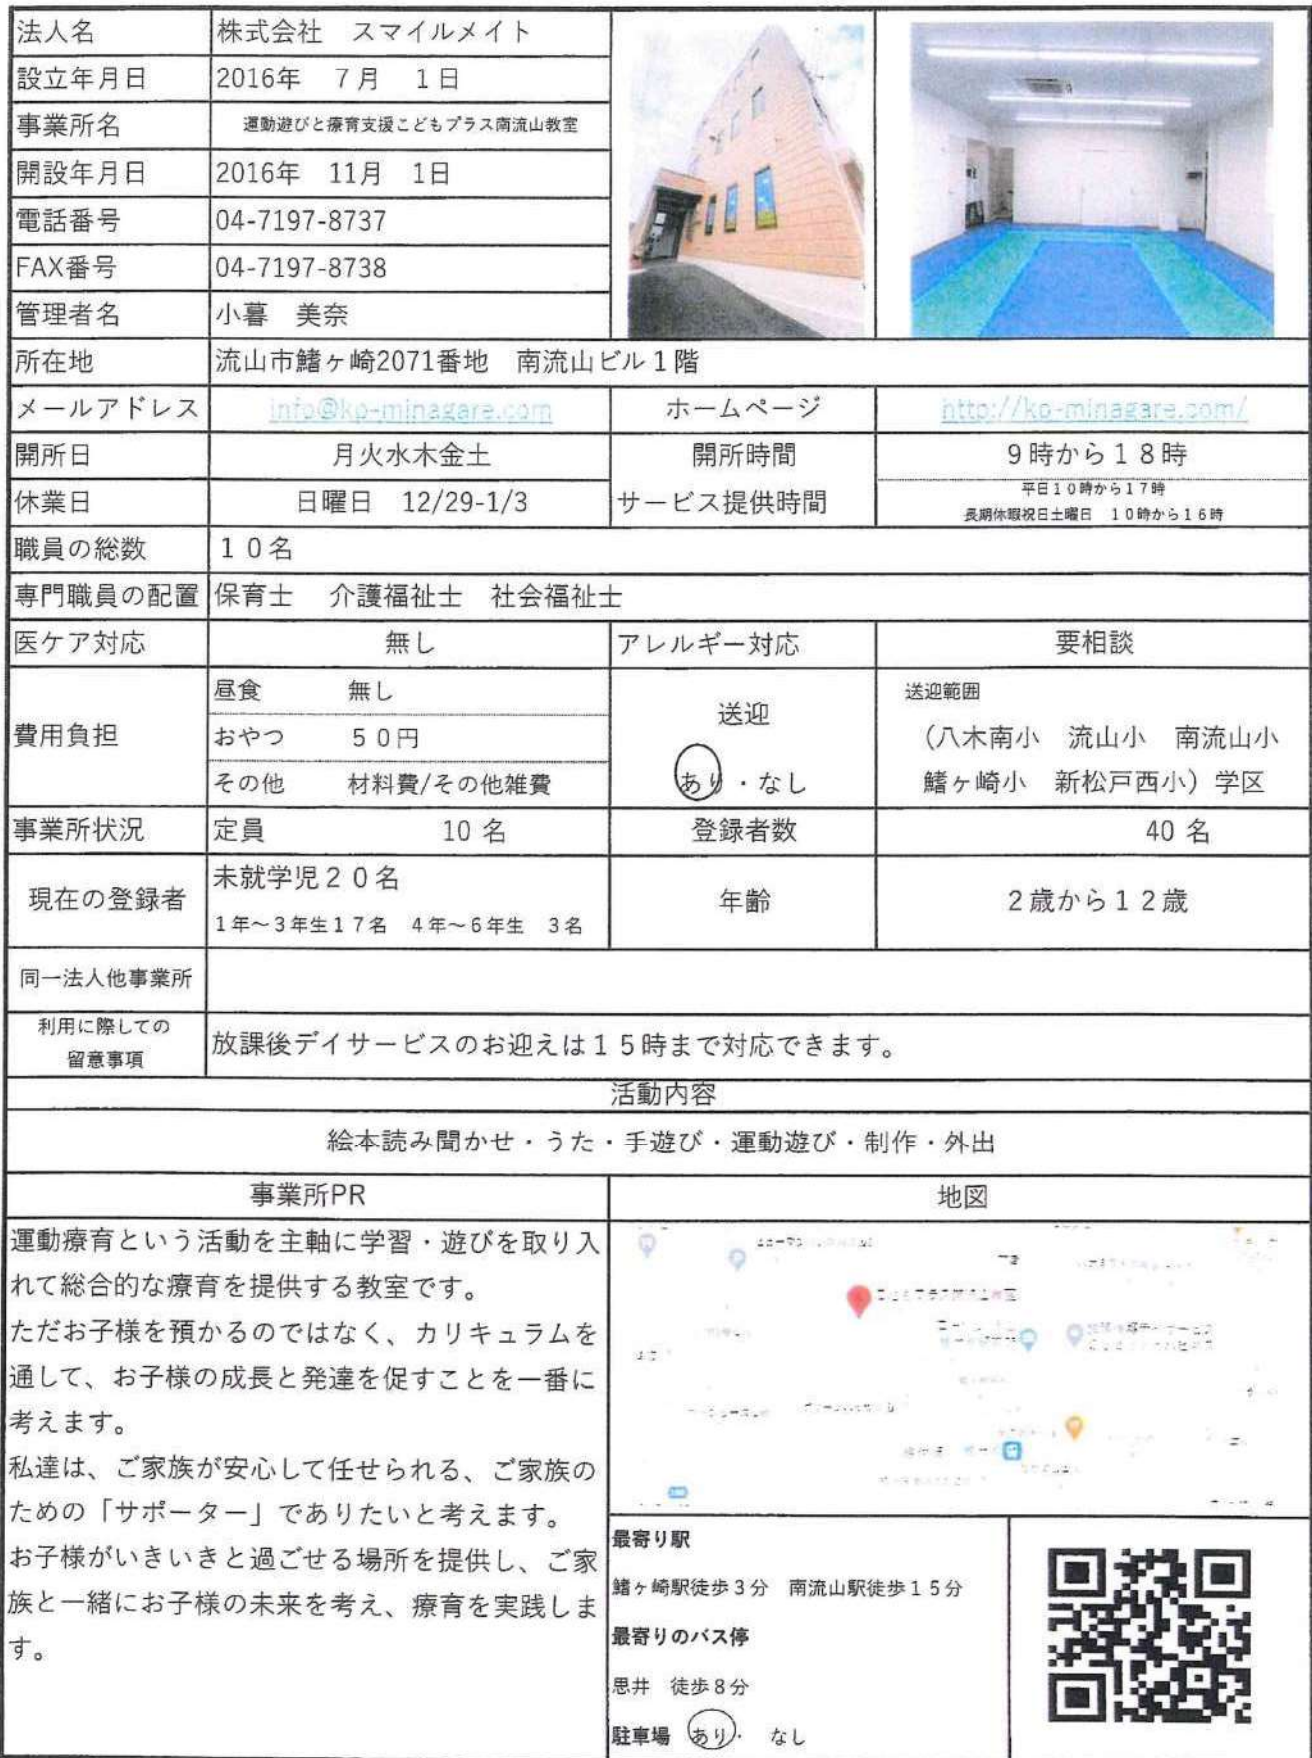 法人名 株式会社 スマイルメイト
設立年月日 2016年 7月 1日
事業所名 運動遊びと療育支援こどもプラス南流山教室
開設年月日 2016年 11月 1日
電話番号 04-7197-8737
FAX番号 04-7197-8738
管理者名 小暮 美奈
所在地 流山市鰭ヶ崎2071番地 南流山ビル1階
メールアドレス info@kp-minagare.com ホームページ http://kp-minagare.com/
開所日 月火水木金土 開所時間 9時から18時
休業日 日曜日 12/29-1/3 サービス提供時間 平日10時から17時
長期休暇祝日土曜日 10時から16時
職員の総数 10名
専門職員の配置 保育士 介護福祉士 社会福祉士
医ケア対応 無し アレルギー対応 要相談
費用負担
昼食 無し
おやつ 50円
その他 材料費/その他雑費
送迎
あり・なし
送迎範囲
(八木南小 流山小 南流山小
鰭ヶ崎小 新松戸西小)学区
事業所状況 定員 10 名 登録者数 40 名
現在の登録者
未就学児20名
1年~3年生17名 4年~6年生 3名
年齢 2歳から12歳
同一法人他事業所
利用に際しての
留意事項
放課後デイサービスのお迎えは15時まで対応できます。
活動内容
絵本読み聞かせ・うた・手遊び・運動遊び・制作・外出
事業所PR
運動療育という活動を主軸に学習・遊びを取り入
れて総合的な療育を提供する教室です。
ただお子様を預かるのではなく、カリキュラムを
通して、お子様の成長と発達を促すことを一番に
考えます。
私達は、ご家族が安心して任せられる、ご家族の
ための「サポーター」でありたいと考えます。
お子様がいきいきと過ごせる場所を提供し、ご家
族と一緒にお子様の未来を考え、療育を実践しま
す。
地図
最寄り駅
鰭ヶ崎駅徒歩3分 南流山駅徒歩15分
最寄りのバス停
思井 徒歩8分
駐車場 あり・ なし